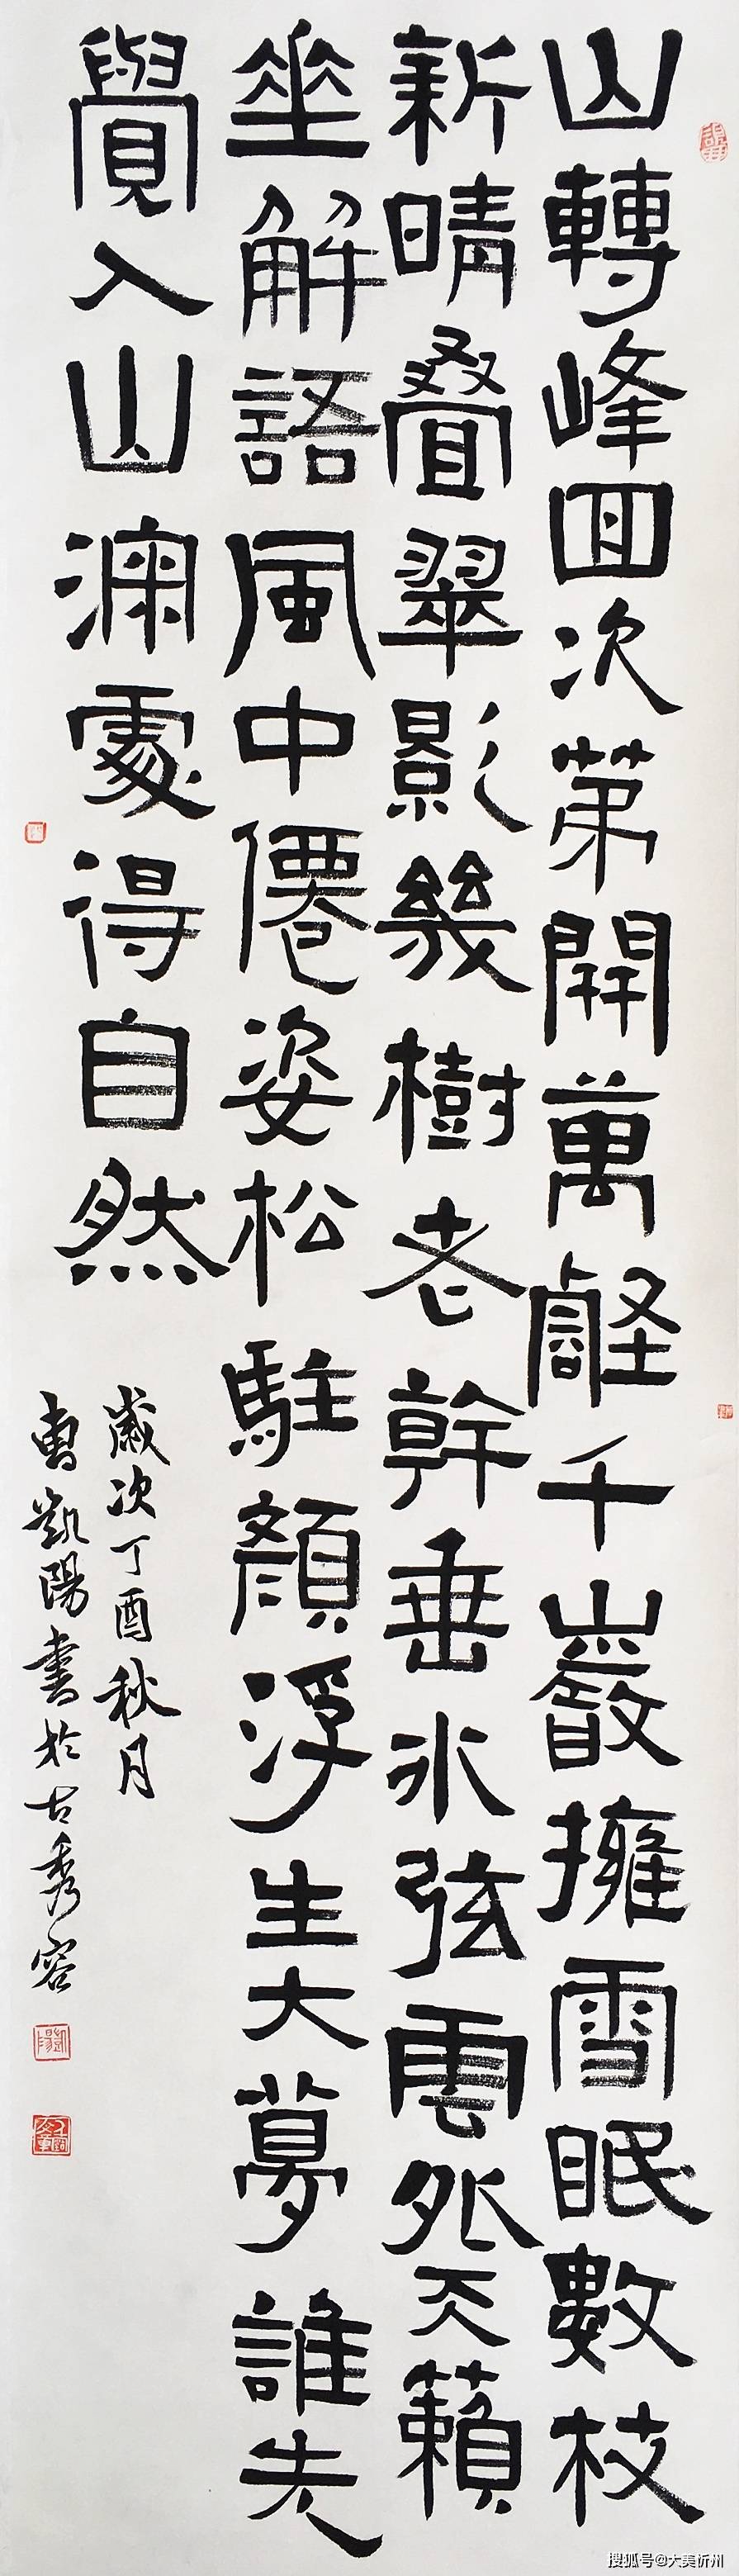 山轉峰回次苐開萬壑千巖擁雪眠數枝
新晴叠翠影幾樹老幹垂冰弦雲外天籟
坐解語風中僊姿松駐顏浮生大夢誰先
覺入山深處得自然
歲次丁酉秋月
曹凱陽書於古秀容
搜狐号@大美忻州